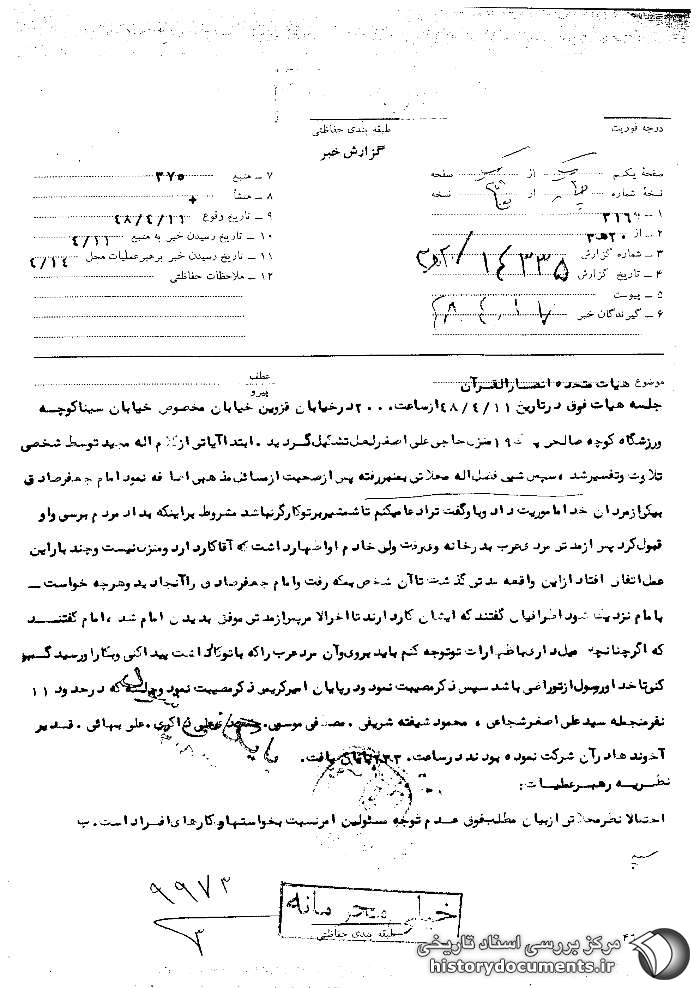 درجه فوریت
طبقه بندی حفاظتی
گزارش خبر
صفحهٔ یکم از صفحه
نسخهٔ شماره از نسخه
۱ ـ به ۳۱۶
۲ ـ از ۲۰ ه‍ ۳
۳ ـ شماره گزارش ۱۴۳۳۵
۴ ـ تاریخ گزارش
۵ ـ پیوست
۶ ـ گیرندگان خبر
۷ ـ منبع ۳۷۵
۸ ـ منشأ +
۹ ـ تاریخ وقوع ۴۸/۴/۱۱
۱۰ ـ تاریخ رسیدن خبر به منبع ۴/۱۱
۱۱ ـ تاریخ رسیدن خبر برهبر عملیات محل ۴/۱۴
۱۲ ـ ملاحظات حفاظتی
موضوع هیات متحده انصارالقرآن
عطف
پیرو
جلسه هیات فوق در تاریخ ۴۸/۴/۱۱ از ساعت ۲۰۰۰ در خیابان قزوین خیابان مخصوص خیابان سینا کوچه
ورزشگاه کوچه صالحی پ ۱۹ منزل حاجی علی اصغر لعل تشکیل گردید . ابتدا آیاتی از کلام اله مجید توسط شخصی
تلاوت و تفسیر شد ، سپس شیخ فضل اله محلاتی بمنبر رفته پس از صحبت از مسائل مذهبی اضافه نمود امام جعفر صادق
بیکی از مردان خدا ماموریت داد و با و گفت ترا دعا میکنم تا شمشیر بر تو کارگر نباشد مشروط براینکه بداد مردم برسی و او
قبول کرد پس از مدتی مردی عرب بدر خانه وی رفت ولی خادم او اظهار داشت که آقا کار دارد و منزل نیست و چند بار این
عمل اتفاق افتاد از این واقعه مدتی گذشت تا آن شخص بمکه رفت و امام جعفر صادق را آنجا دید و هرچه خواست ـ
با امام نزدیک شود اطرافیان گفتند که ایشان کار دارند تا اخرالامر پس از مدتی موفق بدیدن امام شد ، امام گفتند
که اگر چنانچه میل داری باظهارات تو توجه کنم باید بروی و آن مرد عرب را که با تو کار داشت پیدا کنی و بکار او رسیدگی
کنی تا خدا و رسول از تو راضی باشد سپس ذکر مصیبت نمود و در پایان امیر کریمی ذکر مصیبت نمود و جلسه که در حدود ۱۱
نفر منجمله سید علی اصغر شجاعی ، محمود شیفته شریفی . مصطفی موسوی . ذاکری . علی بهائی . قدیر
آخوندها در آن شرکت نموده بودند در ساعت ۲۳۳۰ پایان یافت .
نظریه رهبر عملیات :
احتمالا نظر محلاتی از بیان مطلب فوق عدم توجه مسئولین امر نسبت بخواستها و کارهای افراد است . ب
۹۹۷۳
۳
خیلی محرمانه
طبقه بندی حفاظتی
مرکز بررسی اسناد تاریخی
historydocuments.ir